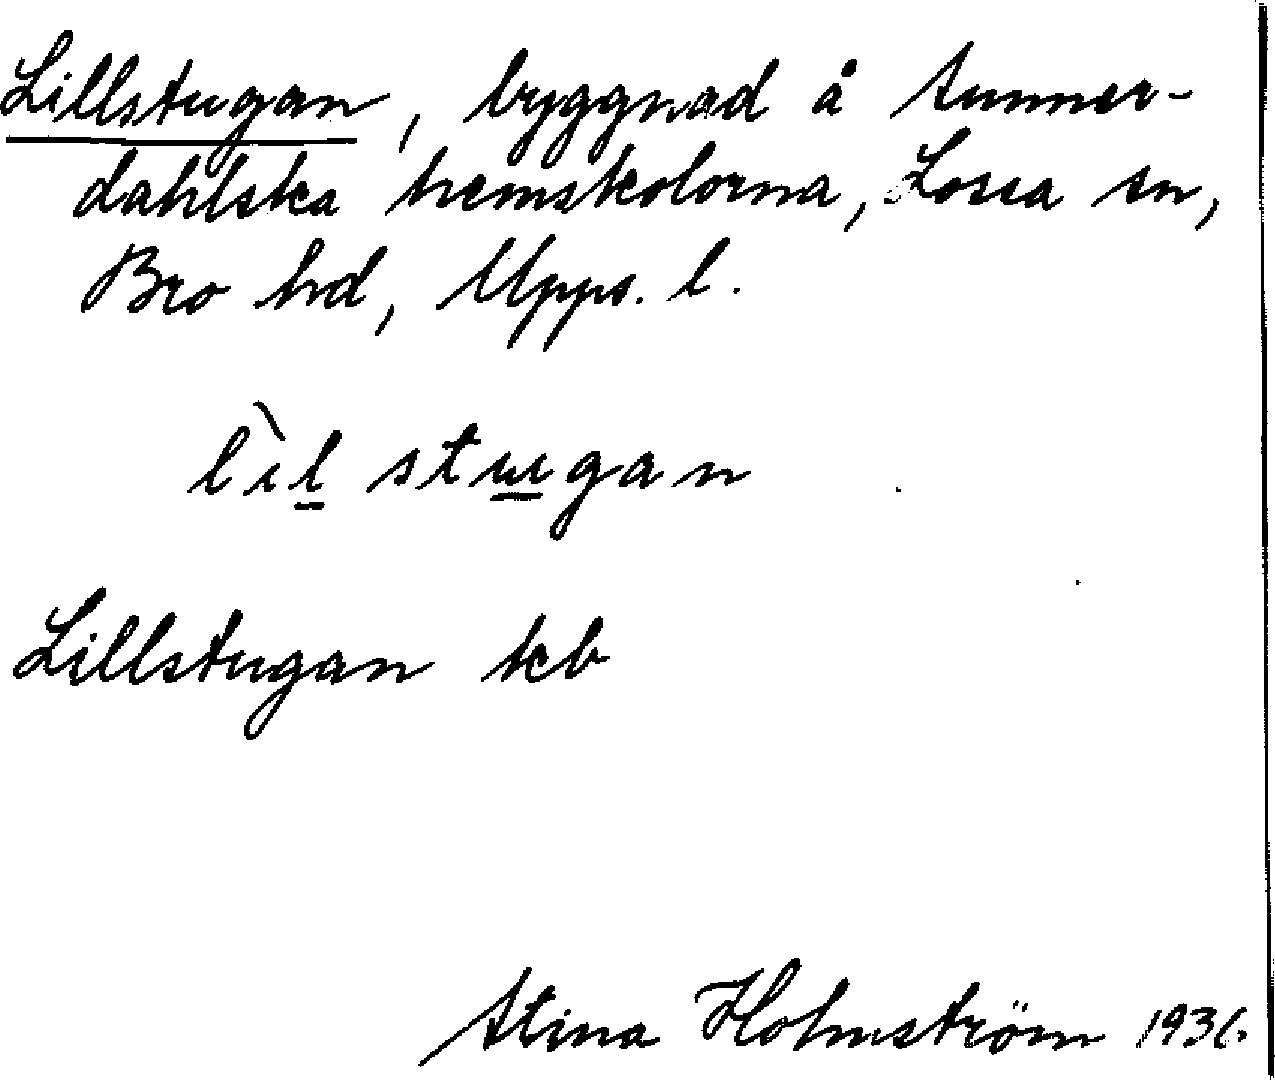 Lillstugan, byggnad å tunner-
dahlska hemskolorna, Lossa sn,
Bro hd, Upps. l.
lìl stugan
Lillstugan kb
Stina Holmström 1936.